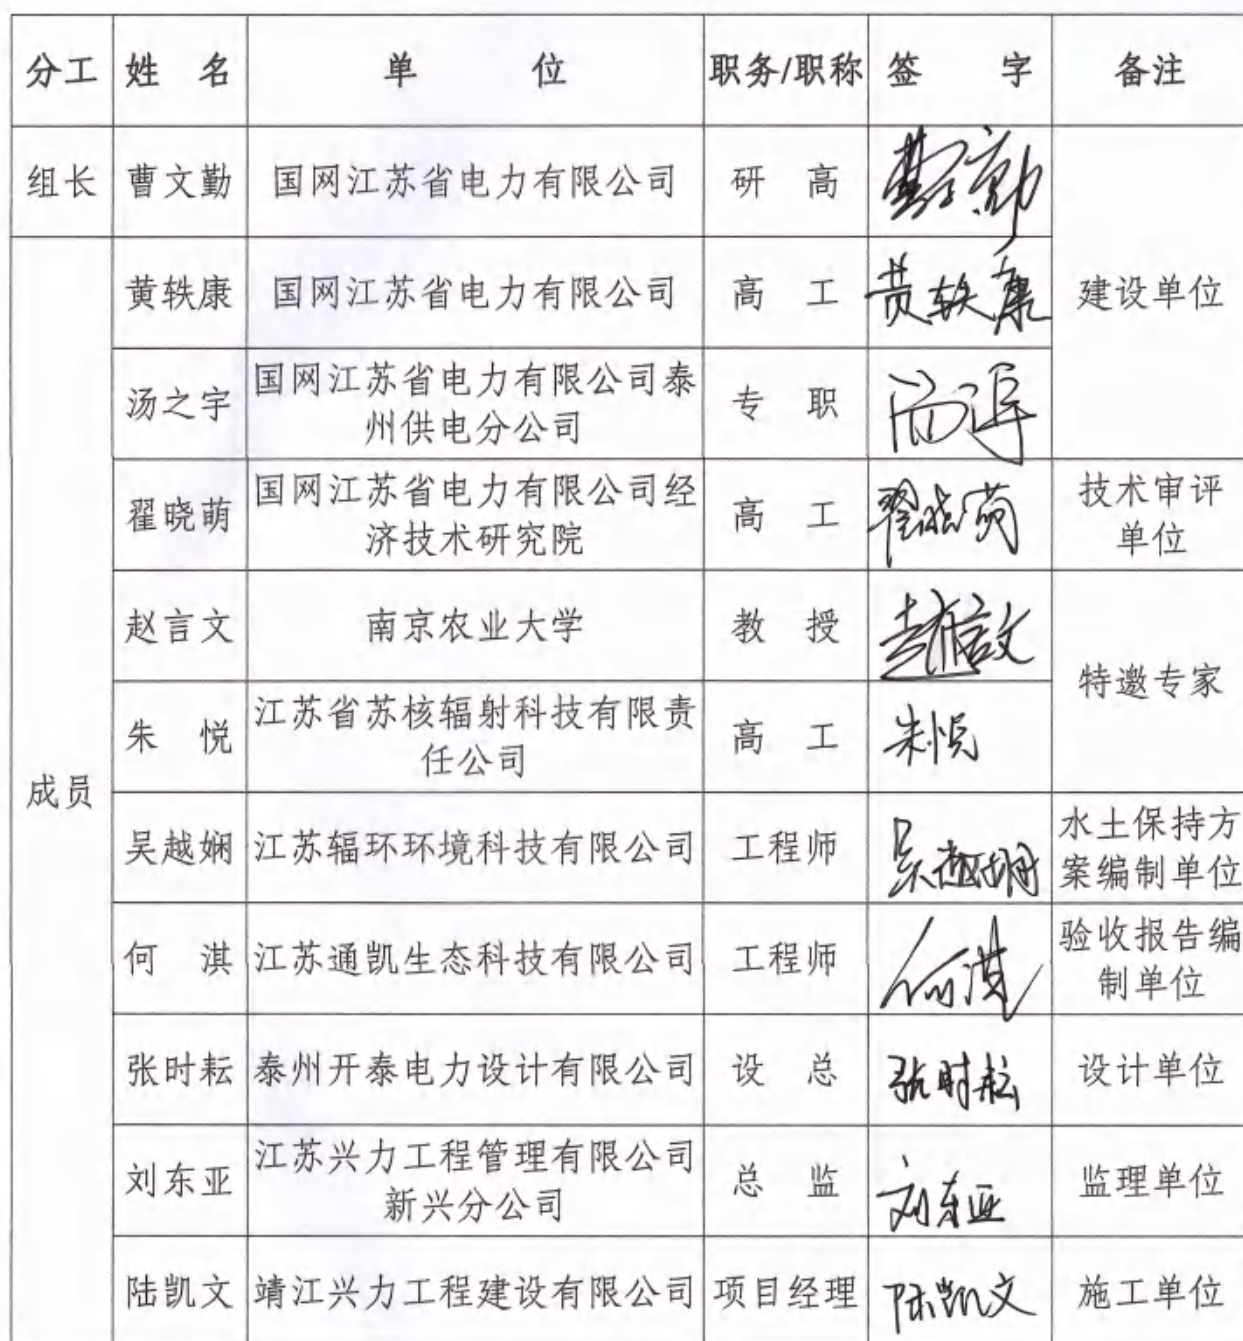 分工 姓 名 单 位 职务/职称 签 字 备注
组长 曹文勤 国网江苏省电力有限公司 研 高 曹文勤
黄轶康 国网江苏省电力有限公司 高 工 黄轶康 建设单位
汤之宇 国网江苏省电力有限公司泰
州供电分公司 专 职
翟晓萌 国网江苏省电力有限公司经
济技术研究院 高 工 翟晓萌 技术审评
单位
赵言文 南京农业大学 教 授 赵言文
特邀专家
朱 悦 江苏省苏核辐射科技有限责
任公司 高 工 朱悦
成员
吴越娴 江苏辐环环境科技有限公司 工程师 吴越娴 水土保持方
案编制单位
何 淇 江苏通凯生态科技有限公司 工程师 何淇 验收报告编
制单位
张时耘 泰州开泰电力设计有限公司 设 总 张时耘 设计单位
刘东亚 江苏兴力工程管理有限公司
新兴分公司 总 监 刘东亚 监理单位
陆凯文 靖江兴力工程建设有限公司 项目经理 陆凯文 施工单位